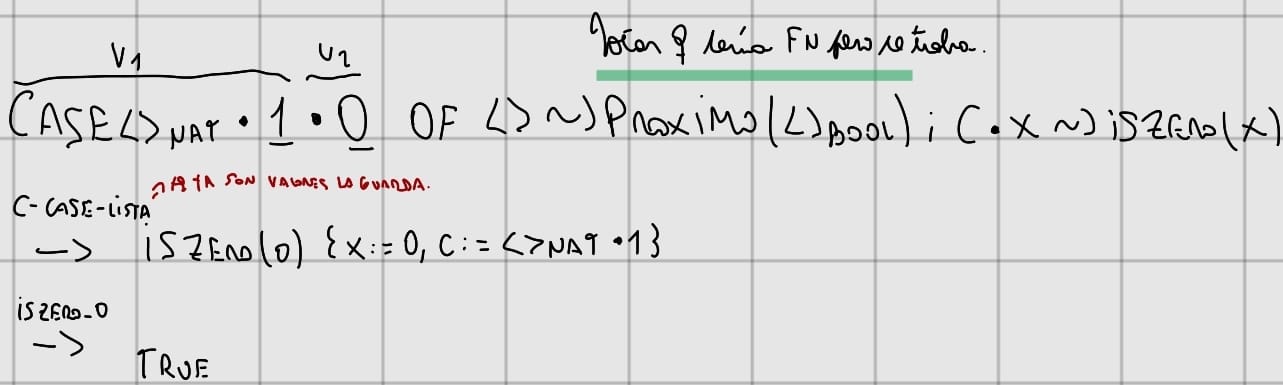 V1 V2
Notar q sería FN pero se traba.
CASE<>NAT • 1 • 0 OF <> ~> Proximo(<>BOOL) ; C • X ~> isZERO(X)
C-CASE-LISTA → YA SON VALORES LA GUARDA.
→ isZERO(0) {X:=0, C:= <>NAT •1}
isZERO_0
→
TRUE